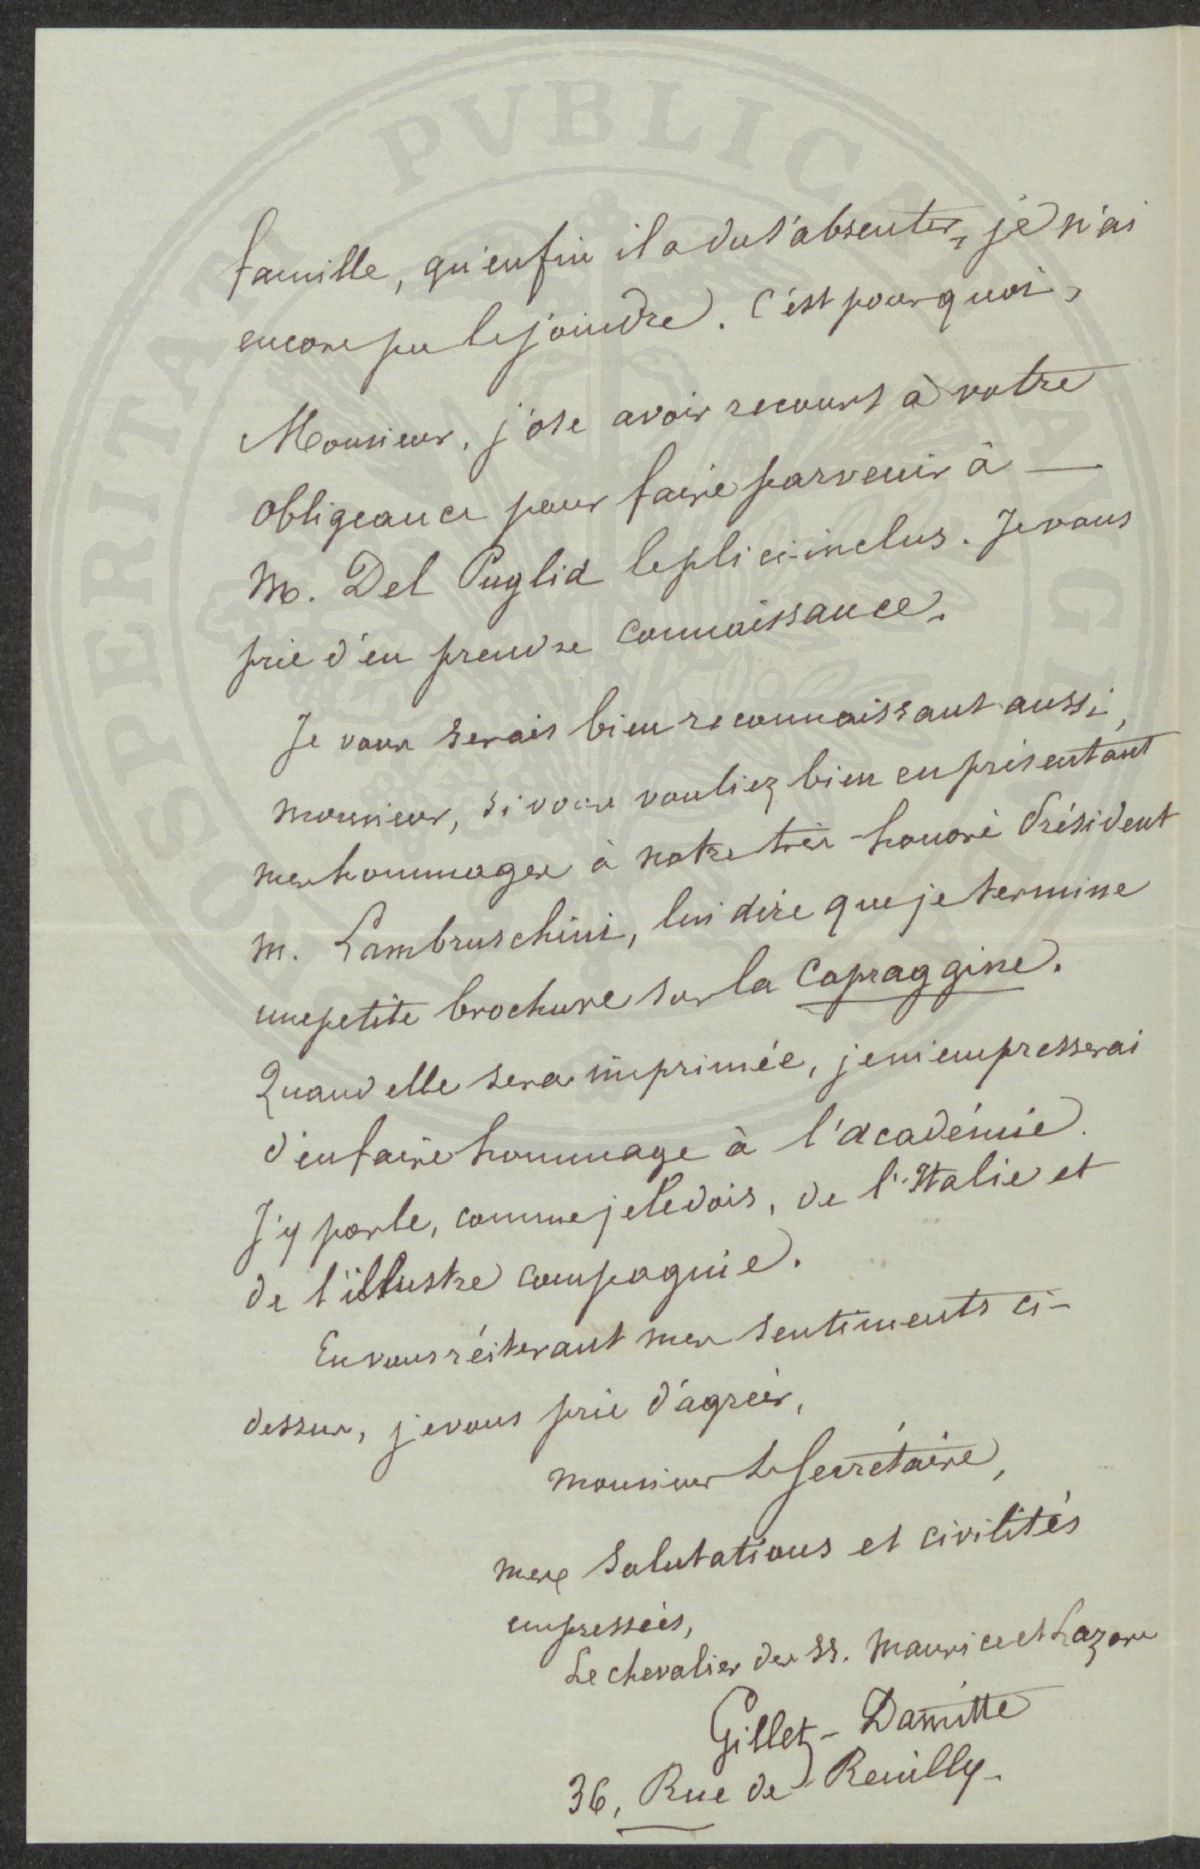 famille, qu'enfin il a du s'absenter, je n'ai
encore pu le joindre. C'est pourquoi,
Monsieur, j'ose avoir recours à votre
obligeance pour faire parvenir à —
M. Del Puglia le pli ci-inclus. Je vous
prie d'en prendre connaissance.
Je vous serais bien reconnaissant aussi,
monsieur, si vous vouliez bien en présentant
mes hommages à notre très-honoré Président
M. Lambruschini, lui dire que je termine
une petite brochure sur la Capraggine.
Quand elle sera imprimée, je m'empresserai
d'en faire hommage à l'académie.
J'y parle, comme je le dois, de l'Italie et
de l'illustre compagnie.
En vous réiterant mes sentiments ci-
dessus, je vous prie d'agréer,
monsieur le Secrétaire,
mes salutations et civilités
empressées,
Le chevalier des SS. Maurice et Lazare
Gillet-Damitte
36, Rue de Reuilly-
PROSPERITATI PVBLICAE AVGENDAE